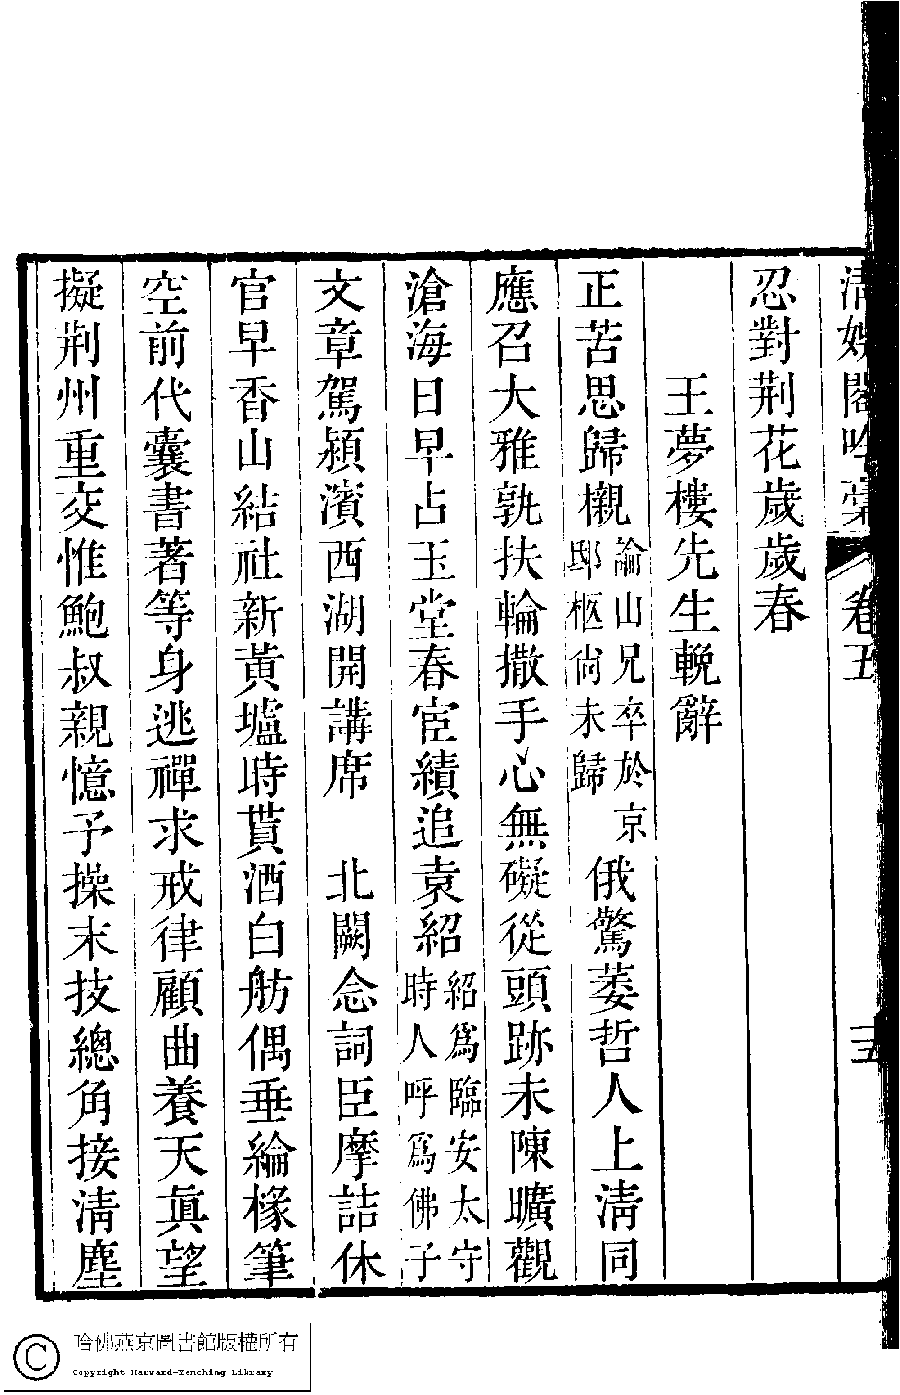 清娛閣吟稾 卷五
忍對荆花歲歲春
王夢樓先生輓辭
正苦思歸櫬論山兄卒於京邸柩尙未歸俄驚萎哲人上淸同
應召大雅孰扶輪撒手心無礙從頭跡未陳曠觀
滄海日早占玉堂春宦績追袁紹紹爲臨安太守時人呼爲佛子
文章駕潁濱西湖開講席 北闕念詞臣摩詰休
官早香山結社新黃壚時貰酒白舫偶垂綸椽筆
空前代囊書著等身逃禪求戒律顧曲養天眞望
擬荆州重交惟鮑叔親憶予操末技總角接淸塵
哈佛燕京圖書館版權所有
Copyright Harvard-Yenching Library